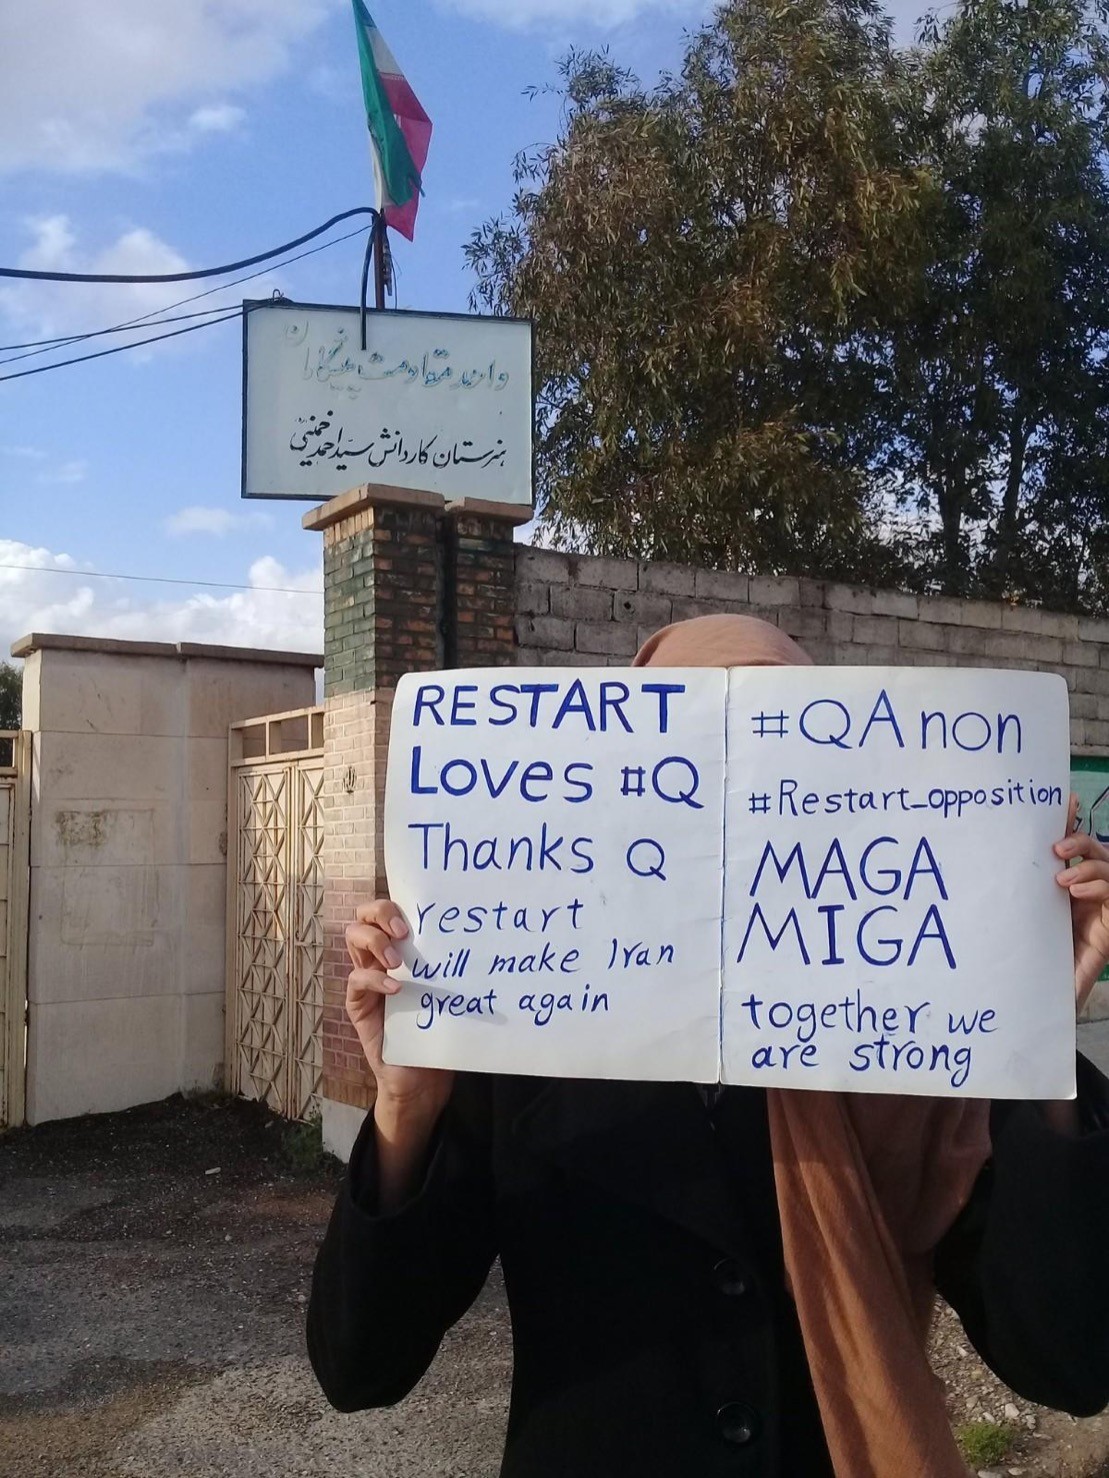 واحد مقاومت پیشگامان
هنرستان کاردانش سیداحمد خمینی
RESTART
Loves #Q
Thanks Q
restart
will make Iran
great again
#QAnon
#Restart_opposition
MAGA
MIGA
together we
are strong